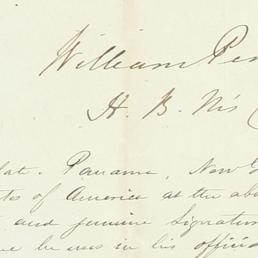 William Per
H. B. M's C
lat. Panama, New G
tes of America at the abo
and genuine signatur
be uses in his officia